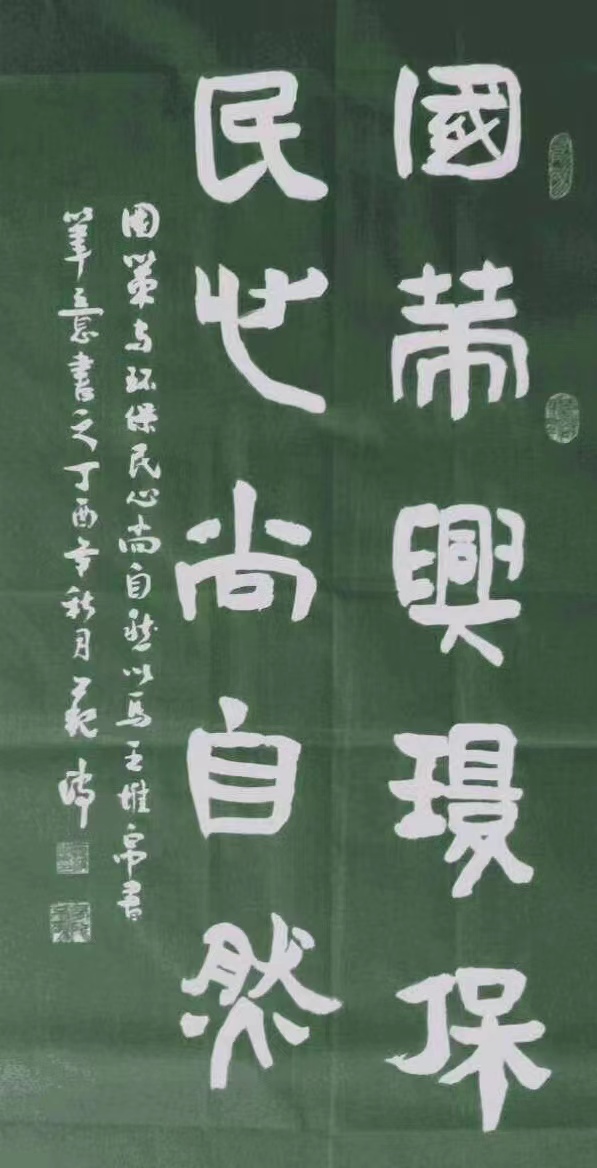 國策興環保
民心尚自然
國策興环保民心尚自然以馬王堆帛書
筆意書之丁酉年秋月